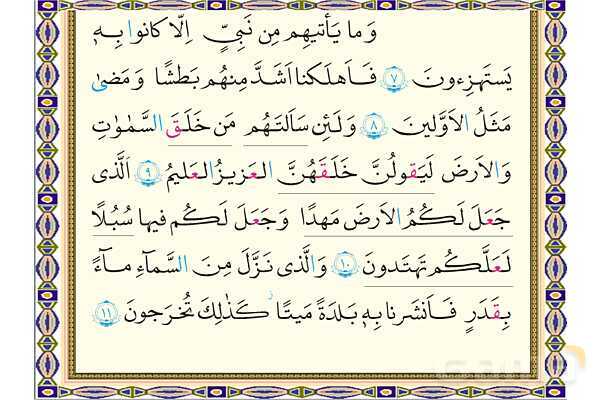 وَ ما یَأتیهِم مِن نَبیٍّ اِلّا کانوا بِهٖ
یَستَهزِءونَ ﴿٧﴾ فَاَهلَکنا اَشَدَّ مِنهُم بَطشًا وَ مَضیٰ
مَثَلُ الاَوَّلینَ ﴿٨﴾ وَ لَئِن سَاَلتَهُم مَن خَلَقَ السَّمٰوٰتِ
وَ الاَرضَ لَیَقولُنَّ خَلَقَهُنَّ العَزیزُ العَلیمُ ﴿٩﴾ اَلَّذی
جَعَلَ لَکُمُ الاَرضَ مَهدًا وَ جَعَلَ لَکُم فیها سُبُلًا
لَعَلَّکُم تَهتَدونَ ﴿١٠﴾ وَ الَّذی نَزَّلَ مِنَ السَّمآءِ مآءً
بِقَدَرٍ فَاَنشَرنا بِهٖ بَلدَةً مَیتًا ز کَذٰلِکَ تُخرَجونَ ﴿١١﴾